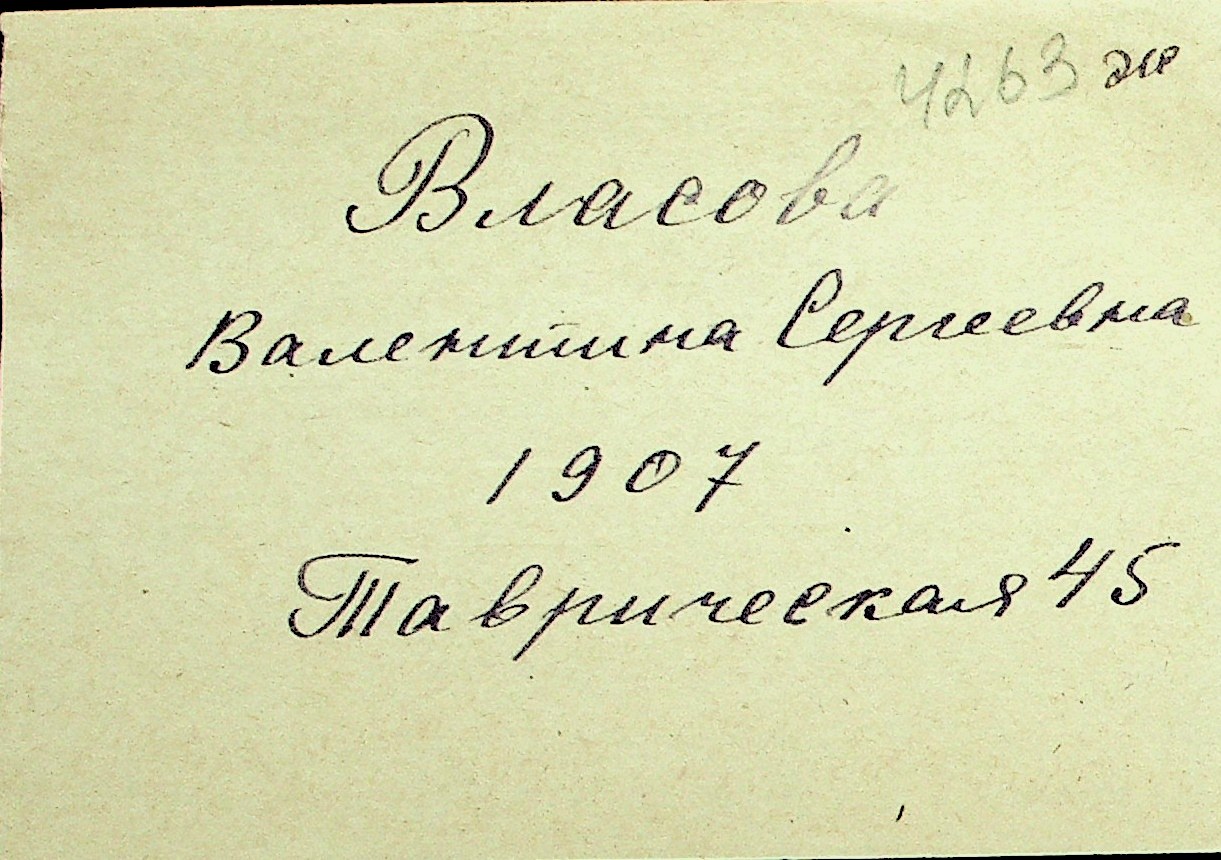 4263 же
Власова
Валентина Сергеевна
1907
Таврическая 45